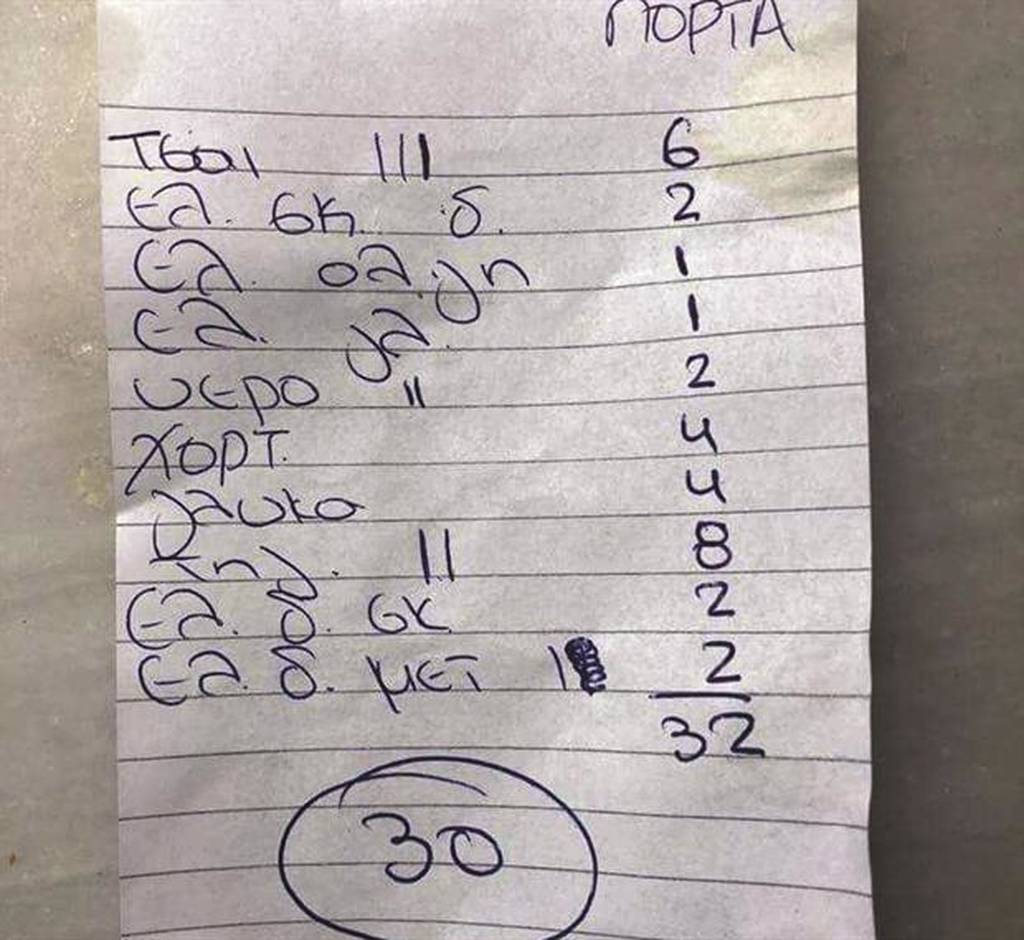 ΠΟΡΤΑ
Τσαι ||| 6
Ελ. σκ. δ. 2
Ελ. ολ. γλ 1
Ελ. γλ. 1
νερο || 2
ΧΟΡΤ. 4
γλυκο 4
|| 8
Ελ. δ. σκ 2
Ελ. δ. μετ | 2
32
30